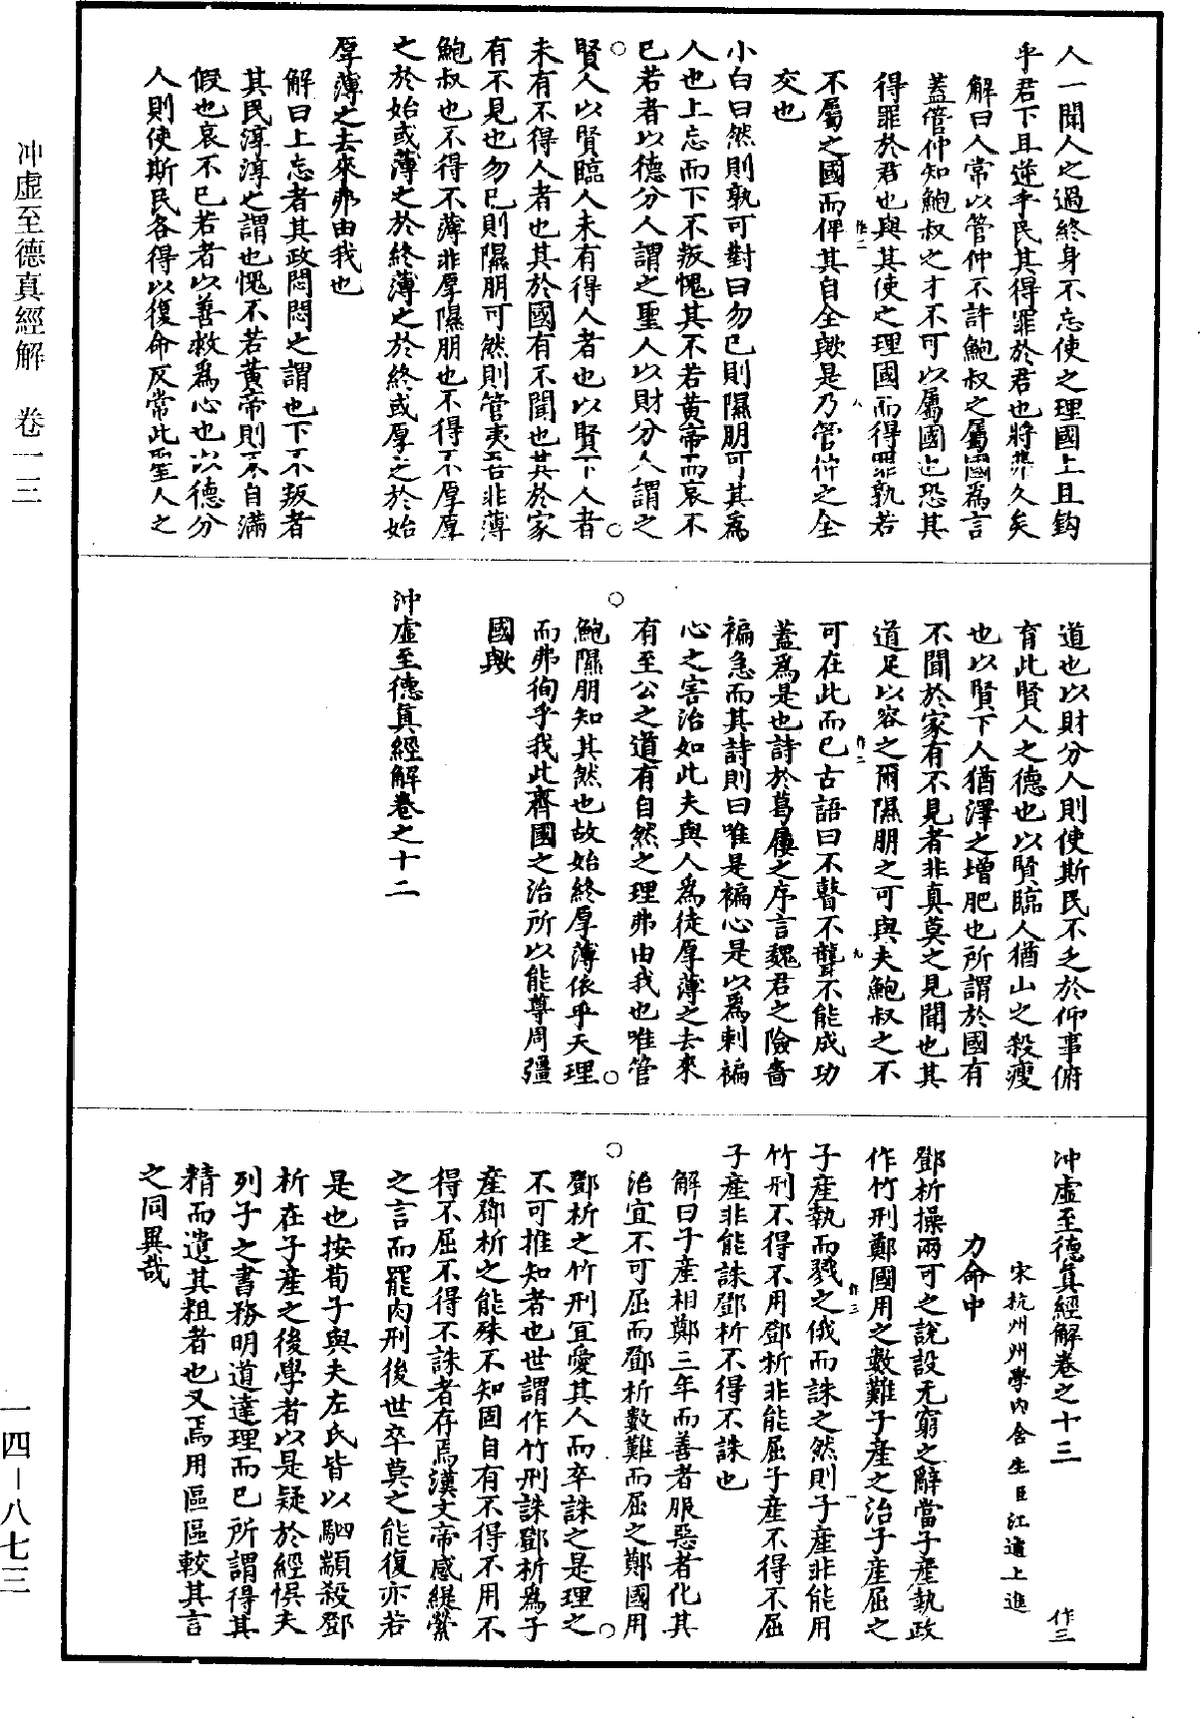 人一聞人之過終身不忘使之理國上且鈎
乎君下且逆乎民其得罪於君也將弗久矣
解曰人常以管仲不許鮑叔之屬國爲言
蓋管仲知鮑叔之才不可以屬國也恐其
得罪於君也與其使之理國而得罪孰若
不屬之國而俾其自全歟是乃管仲之全
交也
小白曰然則孰可對曰勿已則隰朋可其爲
人也上忘而下不叛愧其不若黃帝而哀不
已若者以德分人謂之聖人以財分人謂之
賢人以賢臨人未有得人者也以賢下人者
未有不得人者也其於國有不聞也其於家
有不見也勿已則隰朋可然則管夷吾非薄
鮑叔也不得不薄非厚隰朋也不得不厚厚
之於始或薄之於終薄之於終或厚之於始
厚薄之去來弗由我也
解曰上忘者其政悶悶之謂也下不叛者
其民淳淳之謂也愧不若黃帝則不自滿
假也哀不已若者以善救爲心也以德分
人則使斯民各得以復命反常此聖人之
道也以財分人則使斯民不乏於仰事俯
育此賢人之德也以賢臨人猶山之殺瘦
也以賢下人猶澤之增肥也所謂於國有
不聞於家有不見者非真莫之見聞也其
道足以容之爾隰朋之可與夫鮑叔之不
可在此而已古語曰不瞽不聾不能成功
蓋爲是也詩於葛屨之序言魏君之險嗇
褊急而其詩則曰唯是褊心是以爲刺褊
心之害治如此夫與人爲徒厚薄之去來
有至公之道有自然之理弗由我也唯管
鮑隰朋知其然也故始終厚薄依乎天理
而弗徇乎我此齊國之治所以能尊周彊
國歟
沖虛至德眞經解卷之十二
沖虛至德眞經解卷之十三 作三
宋杭州州學內舍生臣江遹上進
力命中
鄧析操兩可之說設无窮之辭當子產執政
作竹刑鄭國用之數難子產之治子產屈之
子產執而戮之俄而誅之然則子產非能用
竹刑不得不用鄧析非能屈子產不得不屈
子產非能誅鄧析不得不誅也
解曰子產相鄭三年而善者服惡者化其
治宜不可屈而鄧析數難而屈之鄭國用
鄧析之竹刑宜愛其人而卒誅之是理之
不可推知者也世謂作竹刑誅鄧析爲子
產鄧析之能殊不知固自有不得不用不
得不屈不得不誅者存焉漢文帝感緹縈
之言而罷肉刑後世卒莫之能復亦若
是也按荀子與夫左氏皆以駟顓殺鄧
析在子產之後學者以是疑於經悞夫
列子之書務明道達理而已所謂得其
精而遺其粗者也又焉用區區較其言
之同異哉
作二
八
作二
九
作三
一
冲虛至德真經解 卷一三
一四—八七三